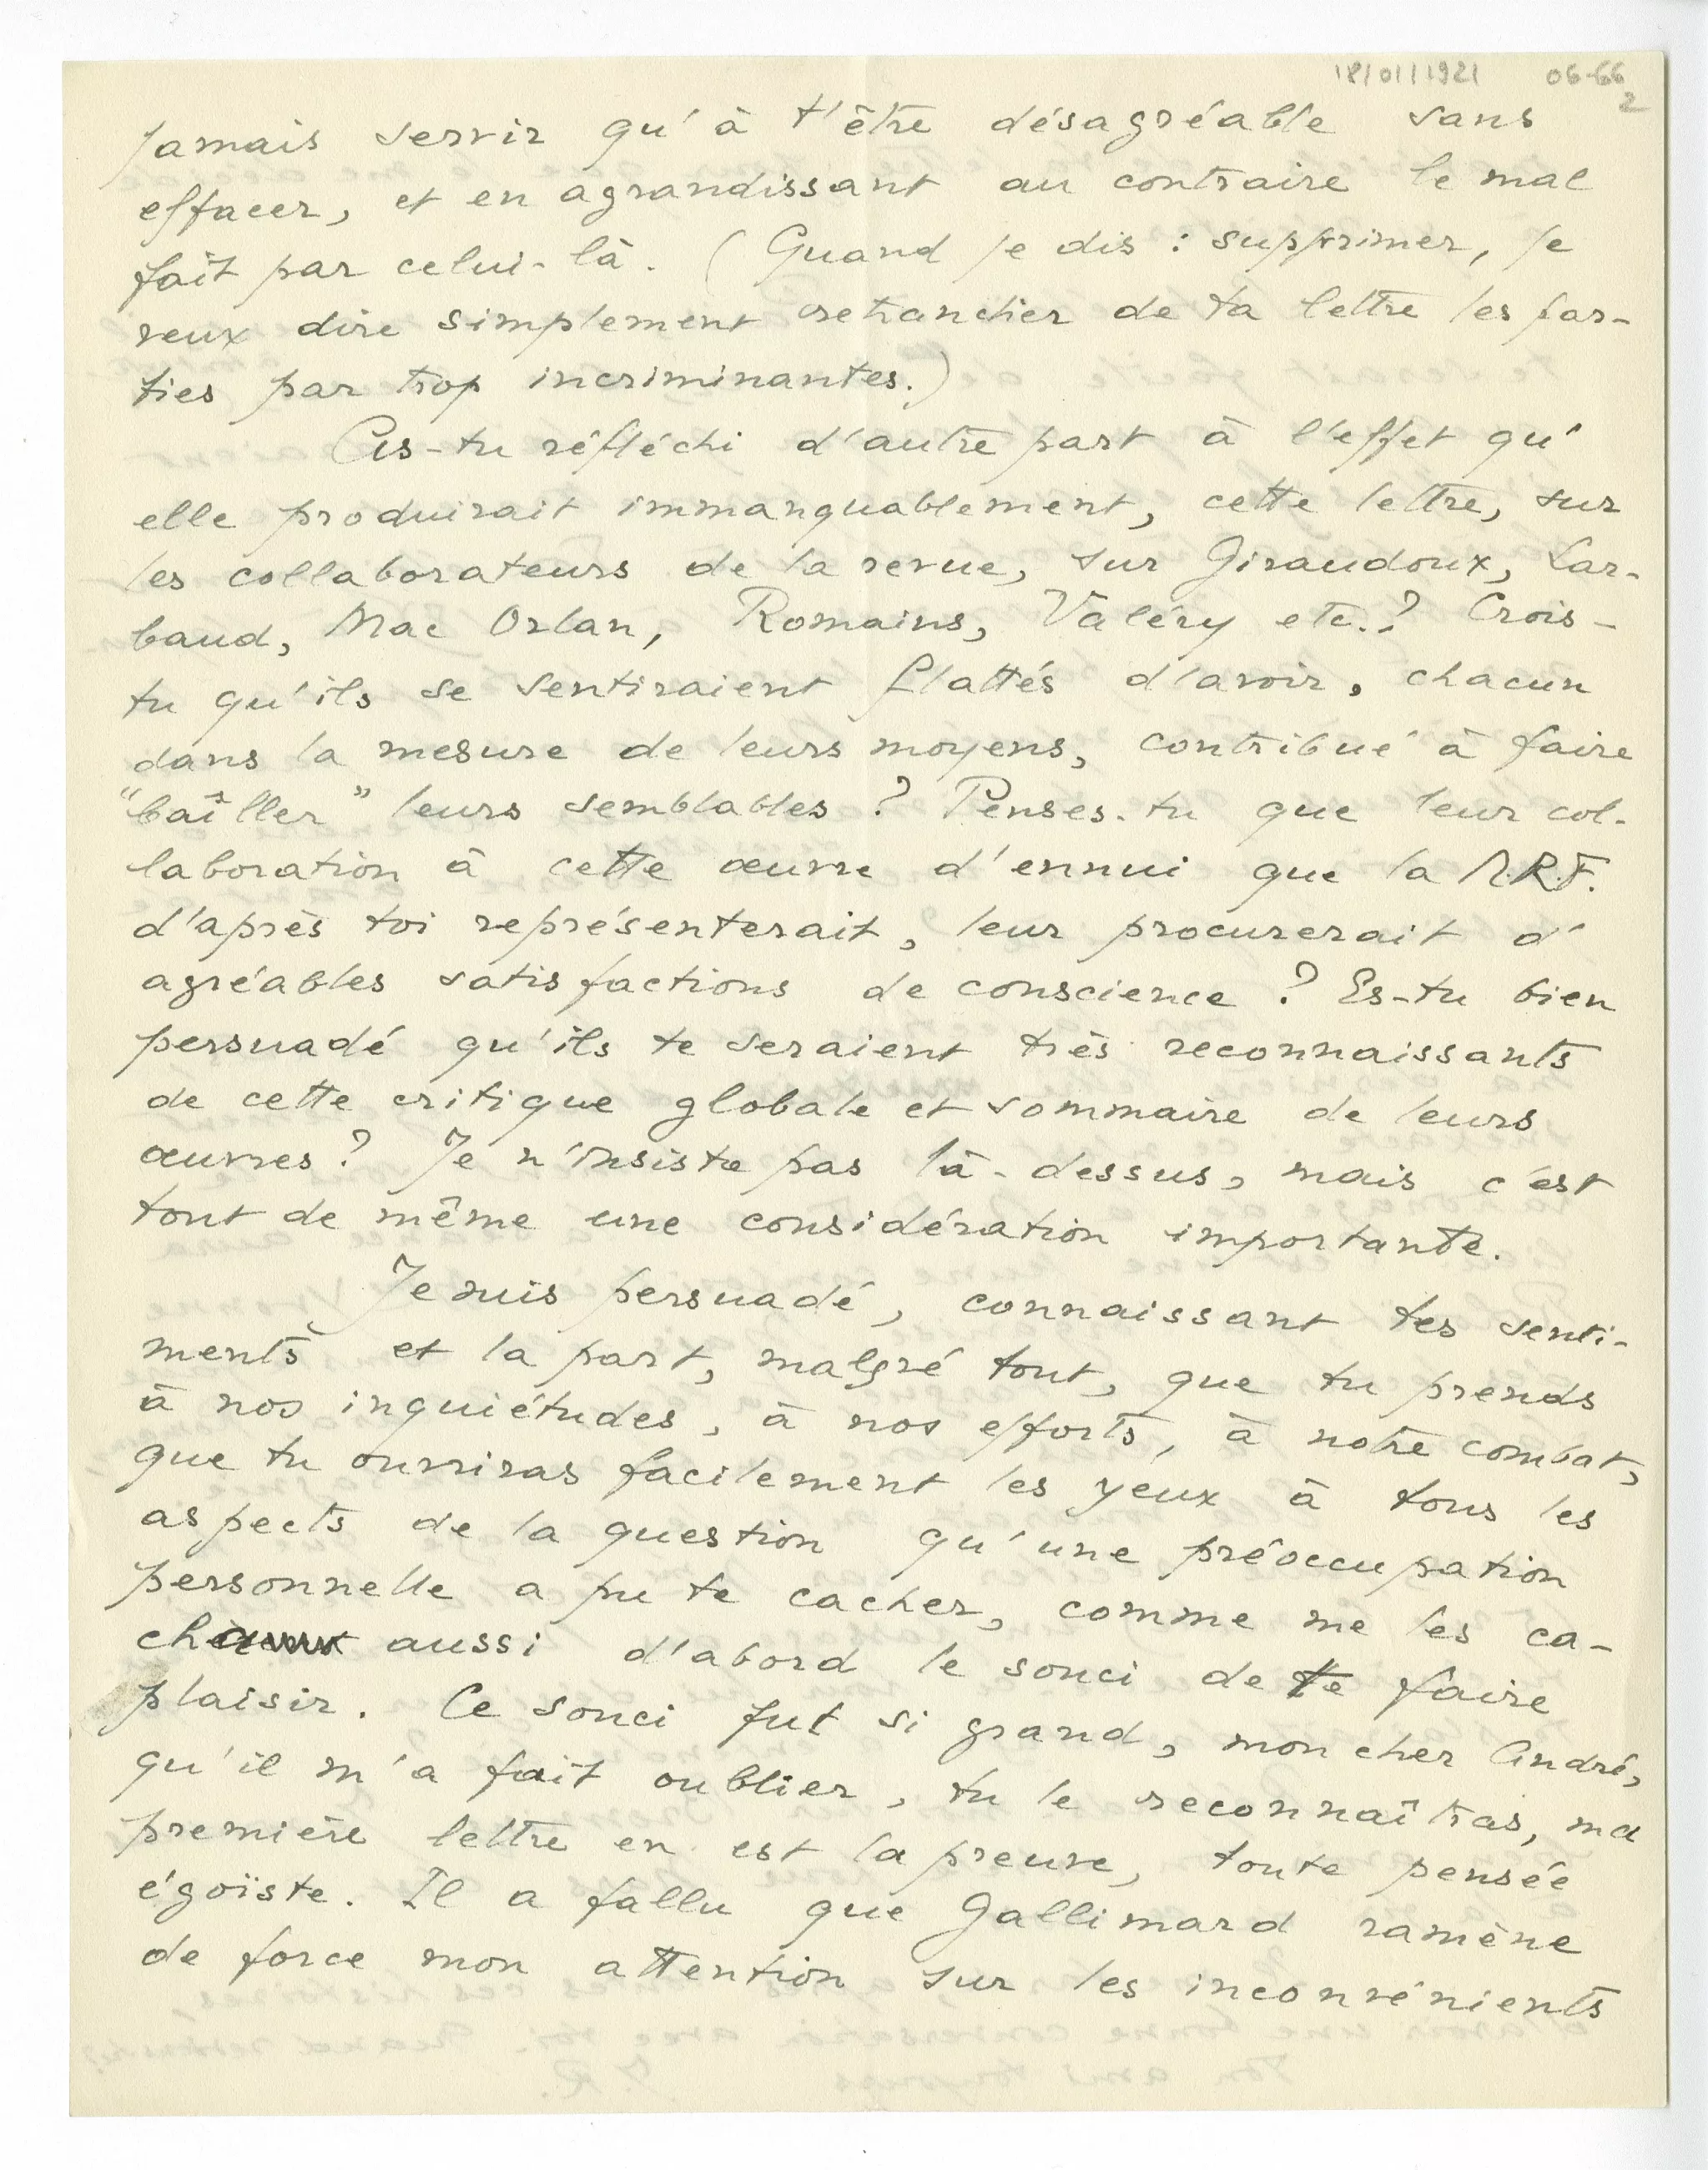 18/01/1921 06-66
2
jamais servir qu'à t'être désagréable sans
effacer, et en agrandissant au contraire le mal
fait par celui-là. (Quand je dis : supprimer, je
veux dire simplement retrancher de ta lettre les par-
ties par trop incriminantes.)
As-tu réfléchi d'autre part à l'effet qu'
elle produirait immanquablement, cette lettre, sur
les collaborateurs de la revue, sur Giraudoux, Lar-
baud, Mac Orlan, Romains, Valéry etc.? Crois-
tu qu'ils se sentiraient flattés d'avoir, chacun
dans la mesure de leurs moyens, contribué à faire
"baîller" leurs semblables ? Penses-tu que leur col-
laboration à cette œuvre d'ennui que la N.R.F.
d'après toi représenterait, leur procurerait d'
agréables satisfactions de conscience ? Es-tu bien
persuadé qu'ils te seraient très reconnaissants
de cette critique globale et sommaire de leurs
œuvres ? Je n'insiste pas là-dessus, mais c'est
tout de même une considération importante.
Je suis persuadé, connaissant tes senti-
ments et la part, malgré tout, que tu prends
à nos inquiétudes, à nos efforts, à notre combat,
que tu ouvriras facilement les yeux à tous les
aspects de la question qu'une préoccupation
personnelle a pu te cacher, comme me les ca-
cha aussi d'abord le souci de te faire
plaisir. Ce souci fut si grand, mon cher André,
qu'il m'a fait oublier, tu le reconnaîtras, ma
première lettre en est la preuve, toute pensée
égoïste. Il a fallu que Gallimard ramène
de force mon attention sur les inconvénients